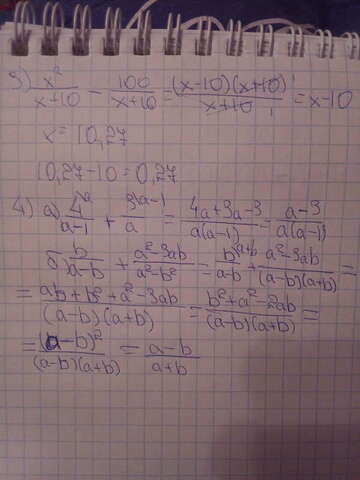 3) x²/(x+10) - 100/(x+10) = (x-10)(x+10)/(x+10) = x-10
x = 10,27
10,27-10=0,27
4) а) 4^a/(a-1) + 3^(a-1)/a = (4a+3a-3)/(a(a-1)) = (a-3)/(a(a-1))
б) b/(a-b) + (a²-3ab)/(a²-b²) = b^(a+b)/(a-b) + (a²-3ab)/((a-b)(a+b)) =
= (ab+b²+a²-3ab)/((a-b)(a+b)) = (b²+a²-2ab)/((a-b)(a+b)) =
= (a-b)²/((a-b)(a+b)) = (a-b)/(a+b)